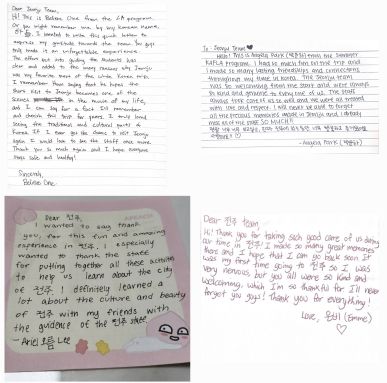 Dear Jeonju Team,
Hi! This is Balinee Choe from the LA program.
Or you might remember me by my Korean name,
I wanted to write this quick letter to
express my gratitude towards the team. You guys
truly made it an unforgettable experience.
The effort put into guiding the students was
clear and added to the many reasons why Jeonju
was my favorite part of the whole Korea trip.
I remember them saying that he hopes the
short visit to Jeonju becomes one of the
scenes in the movie of my life,
and I can say for a fact I'll remember
and cherish this trip for years. I truly loved
seeing the traditional and cultural parts of
Korea. If I ever get the chance to visit Jeonju
again I would love to see the staff once more.
Thank you so much again and I hope everyone
stays safe and healthy!
Sincerely,
Balinee Choe
To - Jeonju Team
Hello! This is Angela Park from the Summer
KAFLA Program. I had so much fun on the trip and
I made so many lasting friendships and connections
throughout my time in Korea. The Jeonju team
was so welcoming from the start and were always
so kind and genuine to every one of us. The staff
always took care of us so well and we were all treated
with love and respect. I will never be able to forget
all the precious memories made in Jeonju and I already
miss all of the staff SO MUCH!!
- Angela Park
Dear 전주,
I wanted to say thank
you, for this fun and amazing
experience in 전주. I especially
wanted to thank the staff
for putting together all these activities
to help us learn about the city
of 전주. I definitely learned a
lot about the culture and beauty
of 전주 with my friends with
the guidence of the 전주 staff.
- Ariel Lee
Dear 전주 team,
Hi! Thank you for taking such good care of us during
our time in 전주! I made so many great memories
there and I hope that I can go back soon. It
was my first time going to 전주 so I was
very nervous, but you all were so kind and
welcoming, which I'm so thankful for. I'll never
forget you guys! Thank you for everything!
Love, (Emme)